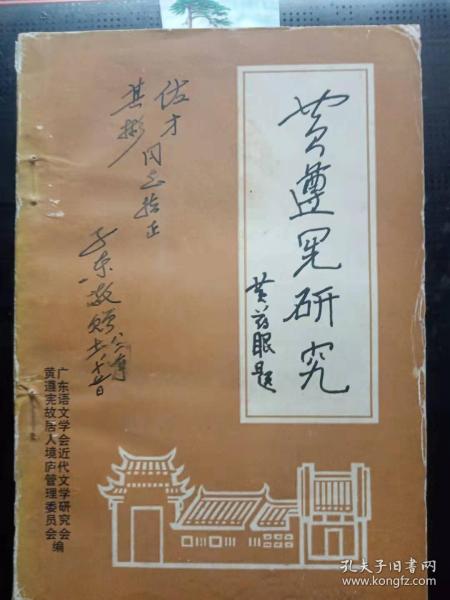 黄遵宪研究
黄药眠题
佐才
其彬
同志指正
子东敬赠
广东语文学会近代文学研究会
黄遵宪故居人境庐管理委员会编
孔夫子旧书网
www.kongfz.com